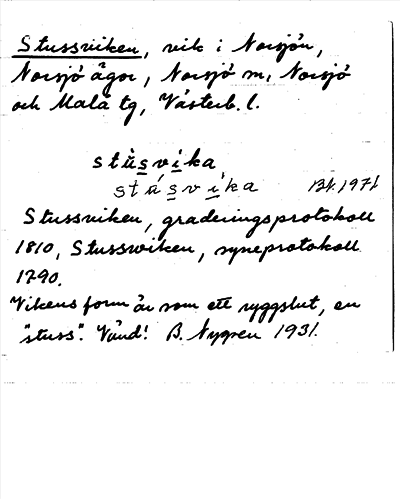 Stussviken, vik i Norsjön,
Norsjö ägor, Norsjö sn, Norsjö
och Malå tg, Västerb. l.
stùsvika
stúsvíka 13/4 1971
Stussviken, graderingsprotokoll
1810, Stusswiken, syneprotokoll
1790.
Vikens form är som ett ryggslut, en
"stuss". Vänd! B. Nygren 1931.